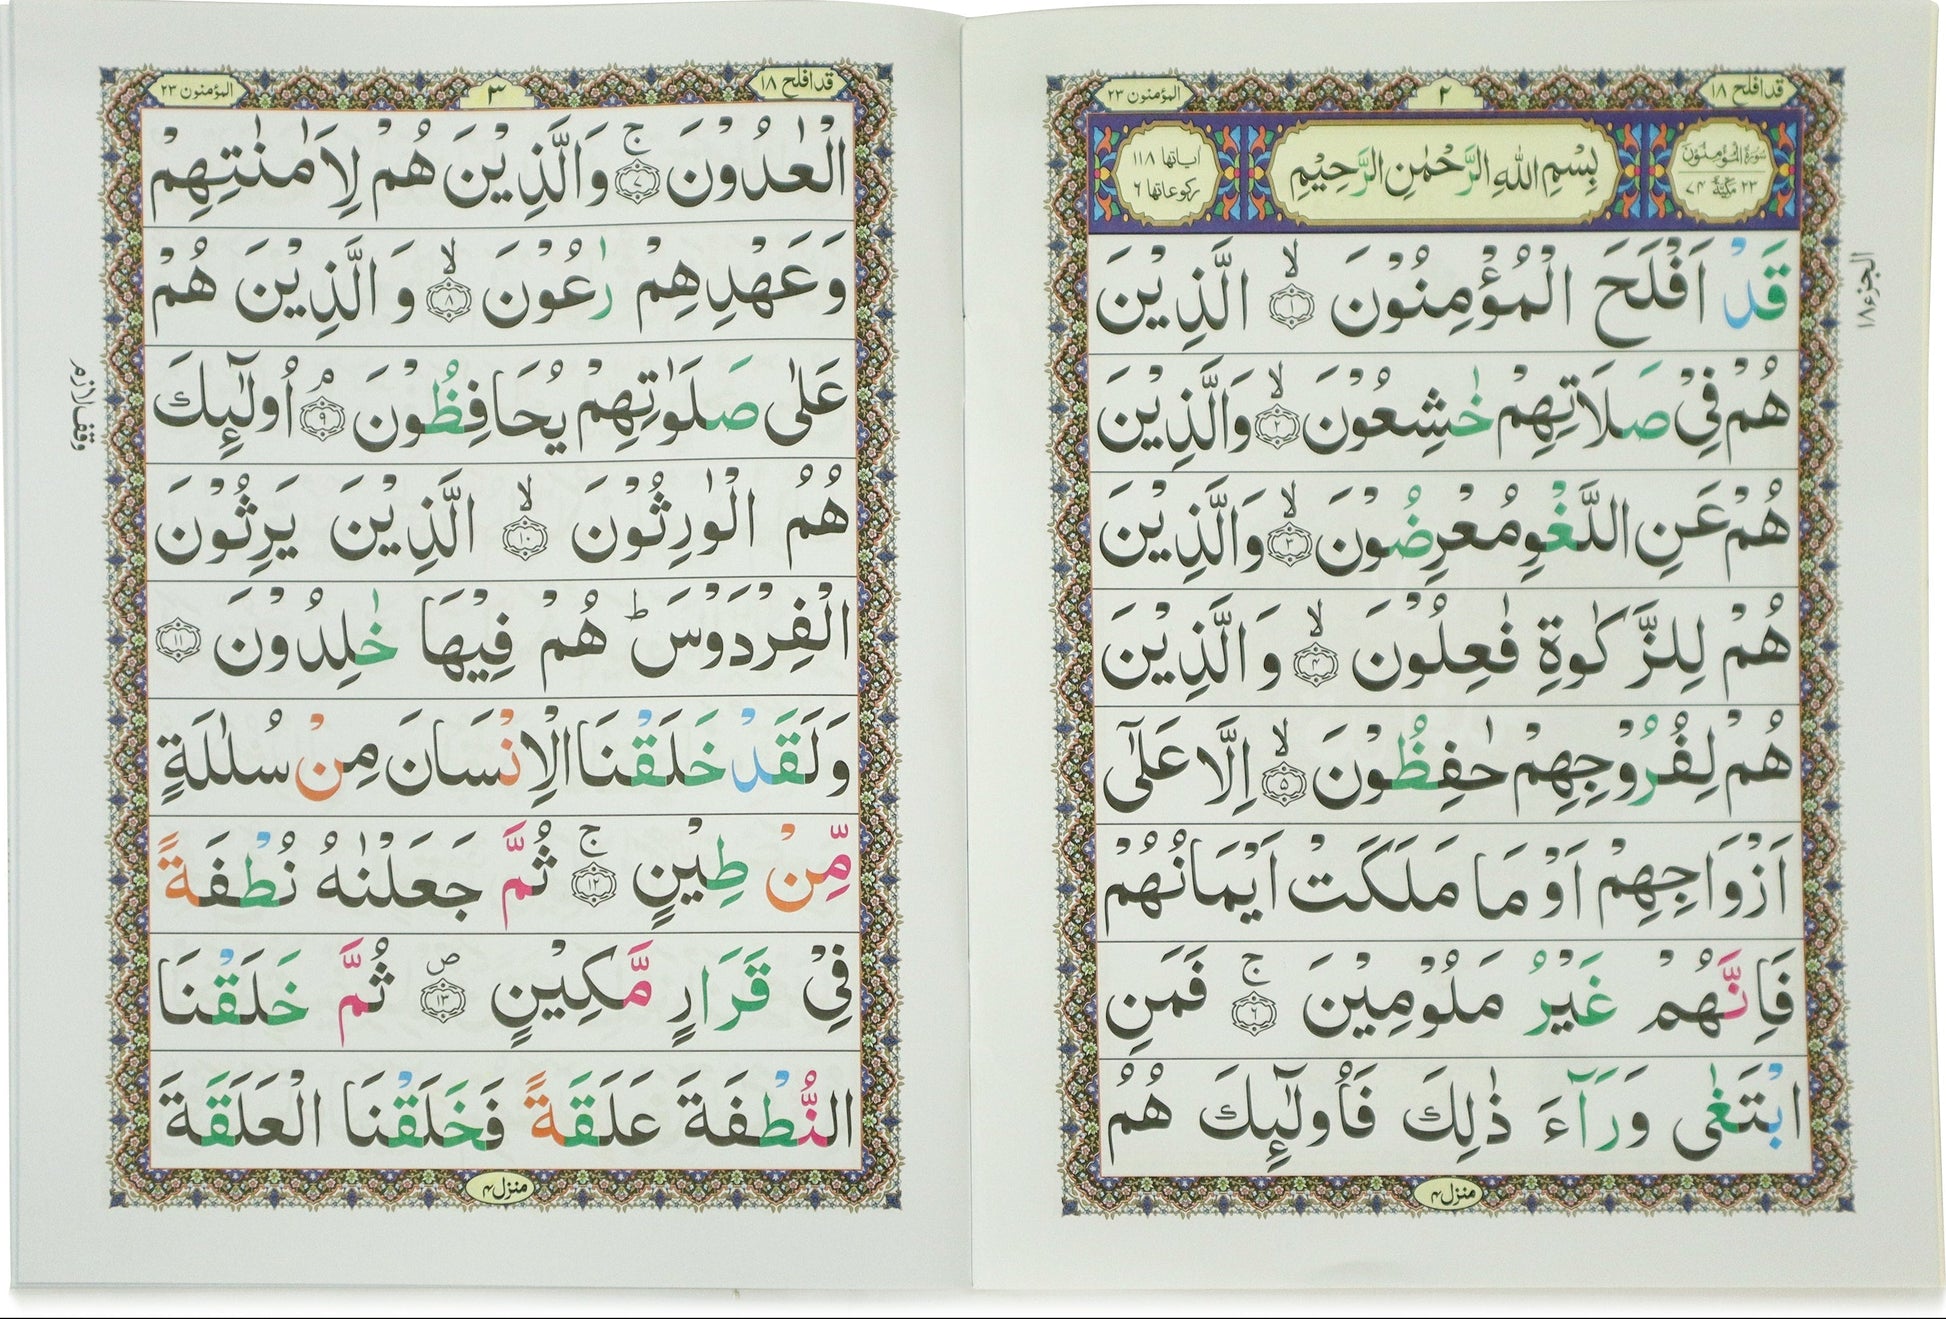 قد افلح ١٨
٢
المؤمنون ٢٣
سُوْرَةُ الْمُؤْمِنُوْنَ
٢٣ مَكِّيَّةٌ ٧٤
بِسْمِ اللهِ الرَّحْمٰنِ الرَّحِيْمِ
اٰیاتها ١١٨
رکوعاتها ٦
الجزء ١٨
قَدْ اَفْلَحَ الْمُؤْمِنُوْنَ ۙ ١ الَّذِيْنَ
هُمْ فِيْ صَلَاتِهِمْ خٰشِعُوْنَ ۙ ٢ وَالَّذِيْنَ
هُمْ عَنِ اللَّغْوِ مُعْرِضُوْنَ ۙ ٣ وَالَّذِيْنَ
هُمْ لِلزَّكٰوةِ فٰعِلُوْنَ ۙ ٤ وَالَّذِيْنَ
هُمْ لِفُرُوْجِهِمْ حٰفِظُوْنَ ۙ ٥ اِلَّا عَلٰٓى
اَزْوَاجِهِمْ اَوْ مَا مَلَكَتْ اَيْمَانُهُمْ
فَاِنَّهُمْ غَيْرُ مَلُوْمِيْنَ ۚ ٦ فَمَنِ
ابْتَغٰى وَرَآءَ ذٰلِكَ فَاُولٰٓئِكَ هُمُ
منزل ٤
قد افلح ١٨
٣
المؤمنون ٢٣
الْعٰدُوْنَ ۚ ٧ وَالَّذِيْنَ هُمْ لِاَمٰنٰتِهِمْ
وَعَهْدِهِمْ رٰعُوْنَ ۙ ٨ وَالَّذِيْنَ هُمْ
عَلٰى صَلَوٰتِهِمْ يُحَافِظُوْنَ ۘ ٩ اُولٰٓئِكَ
وقف لازم
هُمُ الْوٰرِثُوْنَ ۙ ١٠ الَّذِيْنَ يَرِثُوْنَ
الْفِرْدَوْسَ ؕ هُمْ فِيْهَا خٰلِدُوْنَ ١١
وَلَقَدْ خَلَقْنَا الْاِنْسَانَ مِنْ سُلٰلَةٍ
مِّنْ طِيْنٍ ۚ ١٢ ثُمَّ جَعَلْنٰهُ نُطْفَةً
فِيْ قَرَارٍ مَّكِيْنٍ ۪ ١٣ ثُمَّ خَلَقْنَا
النُّطْفَةَ عَلَقَةً فَخَلَقْنَا الْعَلَقَةَ
منزل ٤